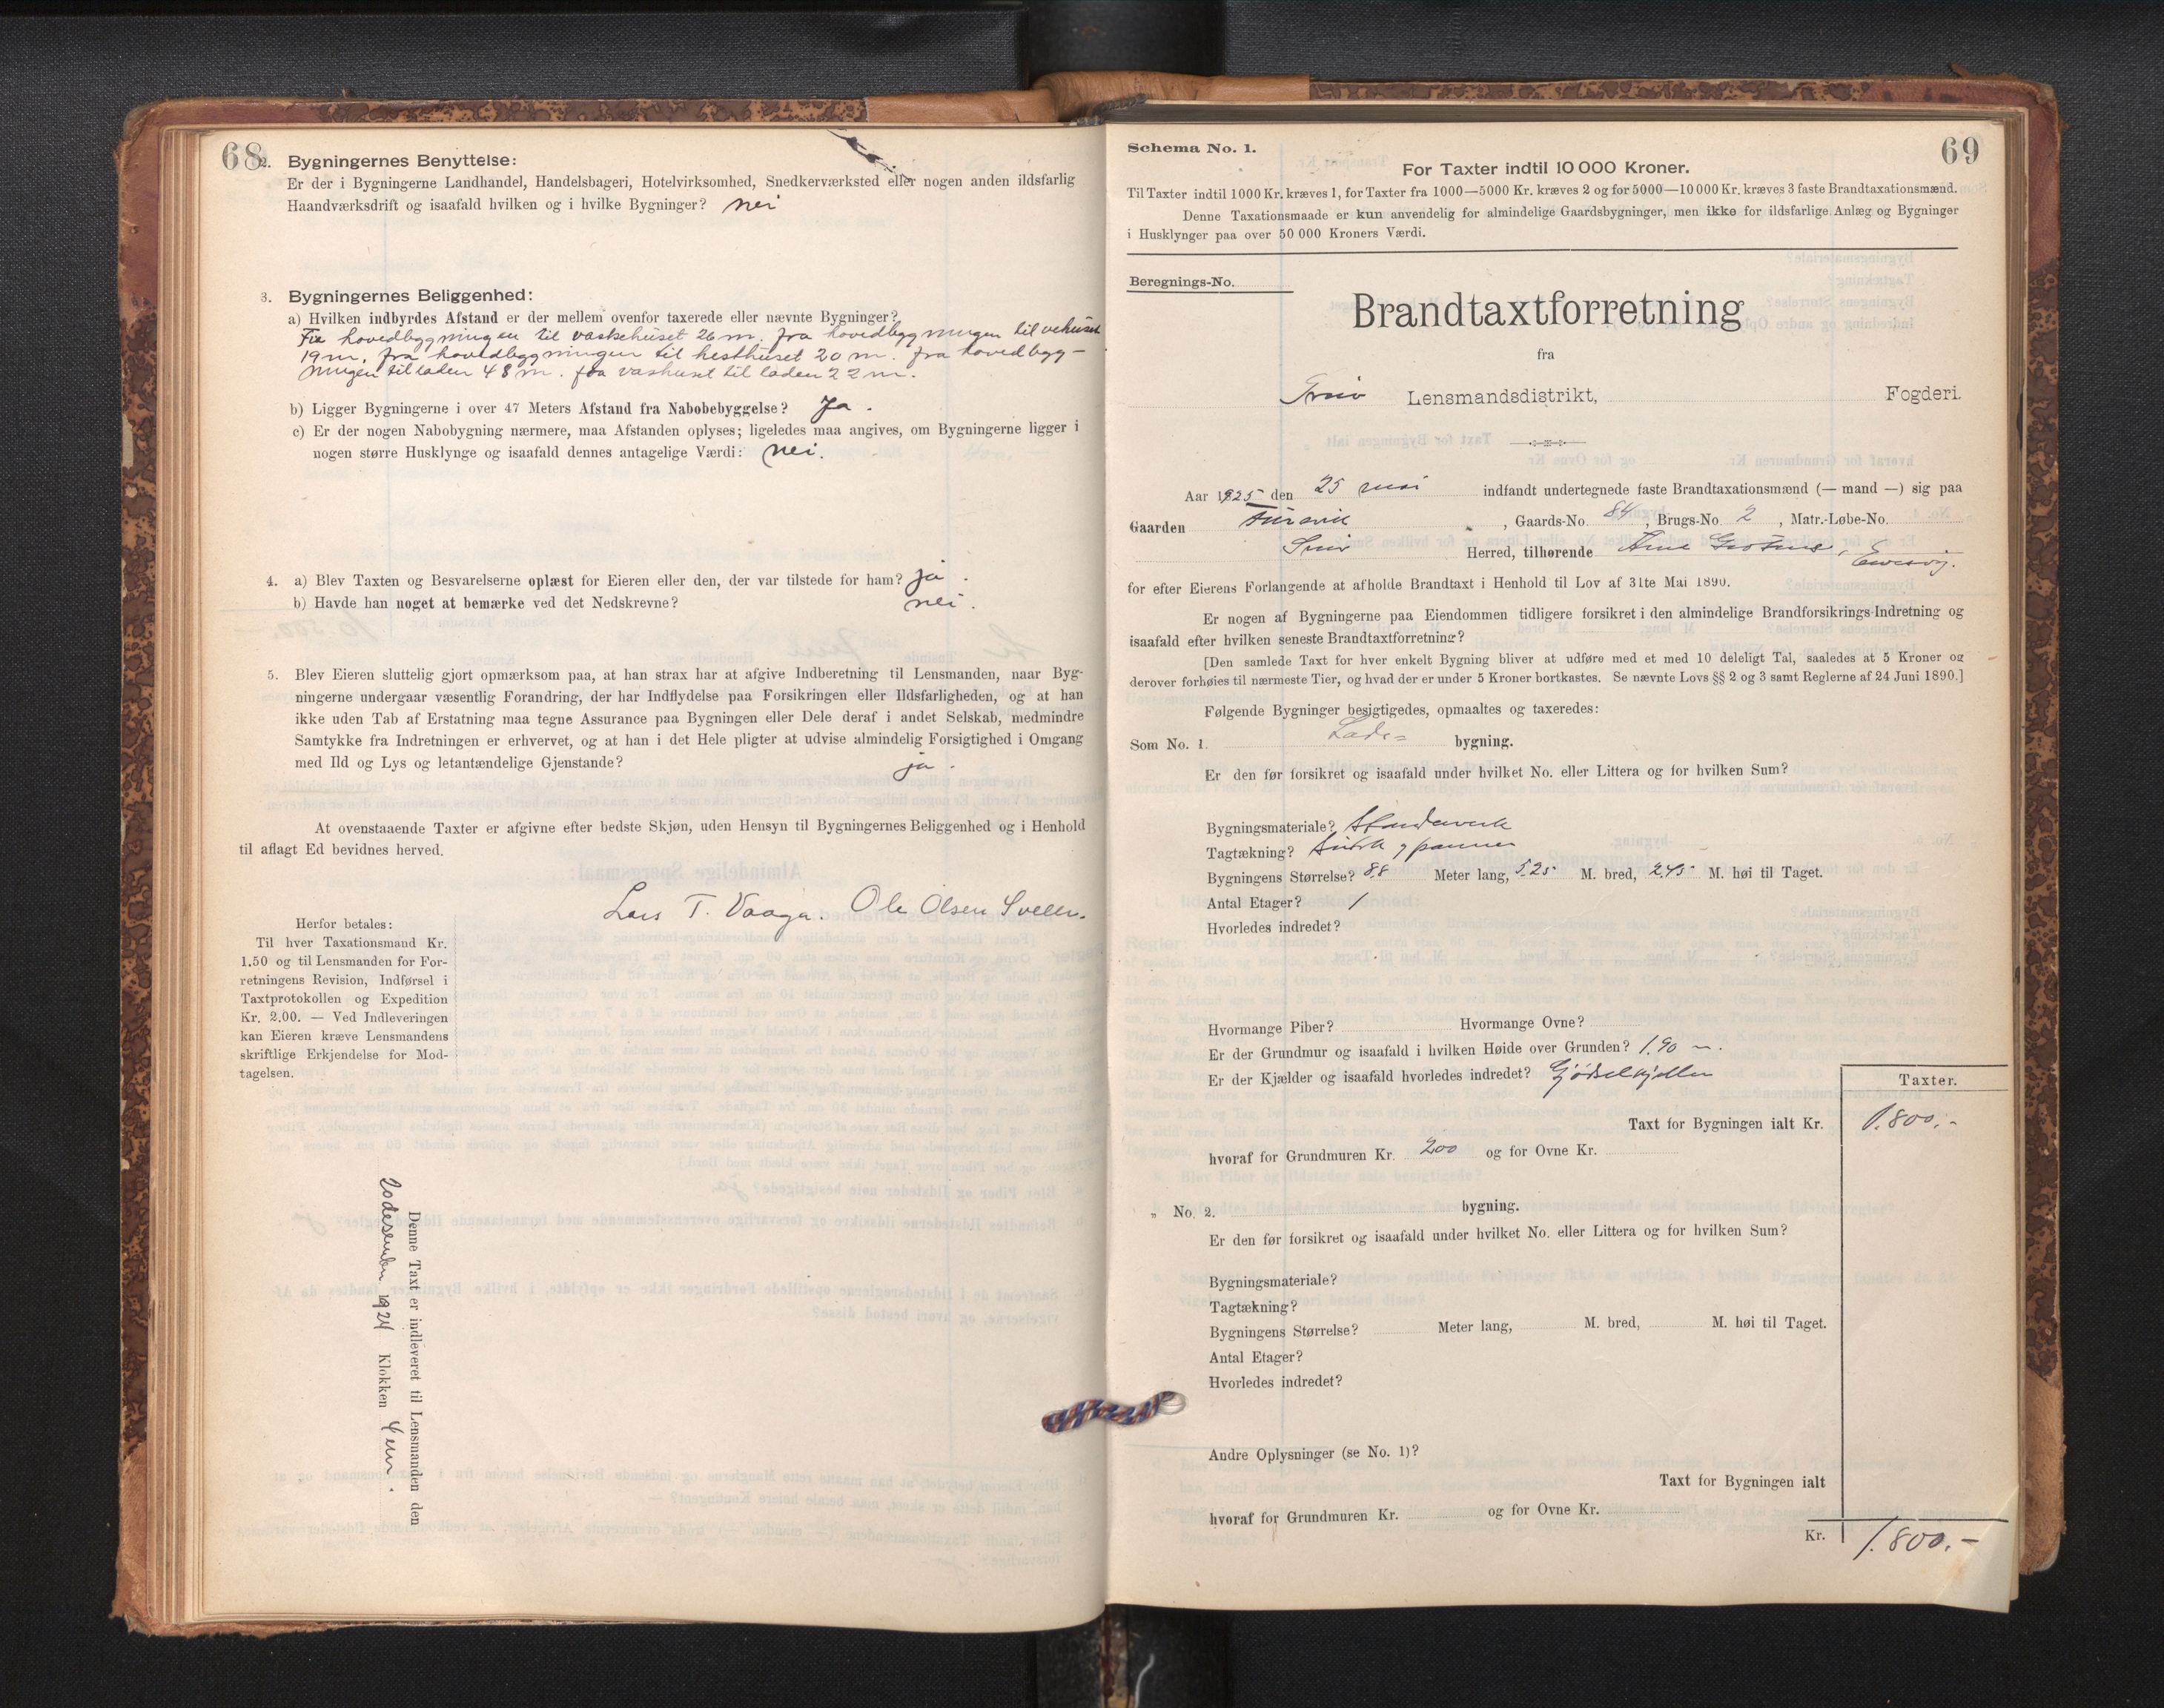 68
2. Bygningernes Benyttelse:
Er der i Bygningerne Landhandel, Handelsbageri, Hotelvirksomhed, Snedkerværksted eller nogen anden ildsfarlig
Haandværksdrift og isaafald hvilken og i hvilke Bygninger? nei
3. Bygningernes Beliggenhed:
a) Hvilken indbyrdes Afstand er der mellem ovenfor taxerede eller nævnte Bygninger?
Fra hovedbygningen til vaskehuset 26 m. fra hovedbygningen til vehuset
19 m. fra hovedbygningen til hesthuset 20 m. fra hovedbyg-
ningen til laden 48 m. fra vashuset til laden 22 m.
b) Ligger Bygningerne i over 47 Meters Afstand fra Nabobebyggelse? Ja.
c) Er der nogen Nabobygning nærmere, maa Afstanden oplyses; ligeledes maa angives, om Bygningerne ligger i
nogen større Husklynge og isaafald dennes antagelige Værdi: nei.
4. a) Blev Taxten og Besvarelserne oplæst for Eieren eller den, der var tilstede for ham? ja.
b) Havde han noget at bemærke ved det Nedskrevne? nei.
5. Blev Eieren sluttelig gjort opmærksom paa, at han strax har at afgive Indberetning til Lensmanden, naar Byg-
ningerne undergaar væsentlig Forandring, der har Indflydelse paa Forsikringen eller Ildsfarligheden, og at han
ikke uden Tab af Erstatning maa tegne Assurance paa Bygningen eller Dele deraf i andet Selskab, medmindre
Samtykke fra Indretningen er erhvervet, og at han i det Hele pligter at udvise almindelig Forsigtighed i Omgang
med Ild og Lys og letantændelige Gjenstande? ja.
At ovenstaaende Taxter er afgivne efter bedste Skjøn, uden Hensyn til Bygningernes Beliggenhed og i Henhold
til aflagt Ed bevidnes herved.
Lars T. Vaage. Ole Olsen
Herfor betales:
Til hver Taxationsmand Kr.
1.50 og til Lensmanden for For-
retningens Revision, Indførsel i
Taxtprotokollen og Expedition
Kr. 2.00. — Ved Indleveringen
kan Eieren kræve Lensmandens
skriftlige Erkjendelse for Mod-
tagelsen.
Denne Taxt er indleveret til Lensmanden den
20 desember 1924 Klokken 4 em.
69
Schema No. 1.
For Taxter indtil 10 000 Kroner.
Til Taxter indtil 1000 Kr. kræves 1, for Taxter fra 1000—5000 Kr. kræves 2 og for 5000—10 000 Kr. kræves 3 faste Brandtaxationsmænd.
Denne Taxationsmaade er kun anvendelig for almindelige Gaardsbygninger, men ikke for ildsfarlige Anlæg og Bygninger
i Husklynger paa over 50 000 Kroners Værdi.
Beregnings-No.
Brandtaxtforretning
fra
Lensmandsdistrikt, Fogderi.
Aar 1925 den 25 mai indfandt undertegnede faste Brandtaxationsmænd (— mand —) sig paa
Gaarden , Gaards-No. 84, Brugs-No. 2, Matr.-Løbe-No.
Herred, tilhørende Arne
for efter Eierens Forlangende at afholde Brandtaxt i Henhold til Lov af 31te Mai 1890.
Er nogen af Bygningerne paa Eiendommen tidligere forsikret i den almindelige Brandforsikrings-Indretning og
isaafald efter hvilken seneste Brandtaxtforretning?
[Den samlede Taxt for hver enkelt Bygning bliver at udføre med et med 10 deleligt Tal, saaledes at 5 Kroner og
derover forhøies til nærmeste Tier, og hvad der er under 5 Kroner bortkastes. Se nævnte Lovs §§ 2 og 3 samt Reglerne af 24 Juni 1890.]
Følgende Bygninger besigtigedes, opmaaltes og taxeredes:
Som No. 1. Lade= bygning.
Er den før forsikret og isaafald under hvilket No. eller Littera og for hvilken Sum?
Bygningsmateriale? Stenderverk
Tagtækning? panner
Bygningens Størrelse? 8,8 Meter lang, 5,25 M. bred, 2,45 M. høi til Taget.
Antal Etager? 1
Hvorledes indredet?
Hvormange Piber? Hvormange Ovne?
Er der Grundmur og isaafald i hvilken Høide over Grunden? 1.90 m.
Er der Kjælder og isaafald hvorledes indredet? Gjødselkjeller
Taxter.
Taxt for Bygningen ialt Kr. 1.800.-
hvoraf for Grundmuren Kr. 200 og for Ovne Kr.
„ No. 2. bygning.
Er den før forsikret og isaafald under hvilket No. eller Littera og for hvilken Sum?
Bygningsmateriale?
Tagtækning?
Bygningens Størrelse? Meter lang, M. bred, M. høi til Taget.
Antal Etager?
Hvorledes indredet?
Andre Oplysninger (se No. 1)?
Taxt for Bygningen ialt
hvoraf for Grundmuren Kr. og for Ovne Kr.
Kr. 1.800.-